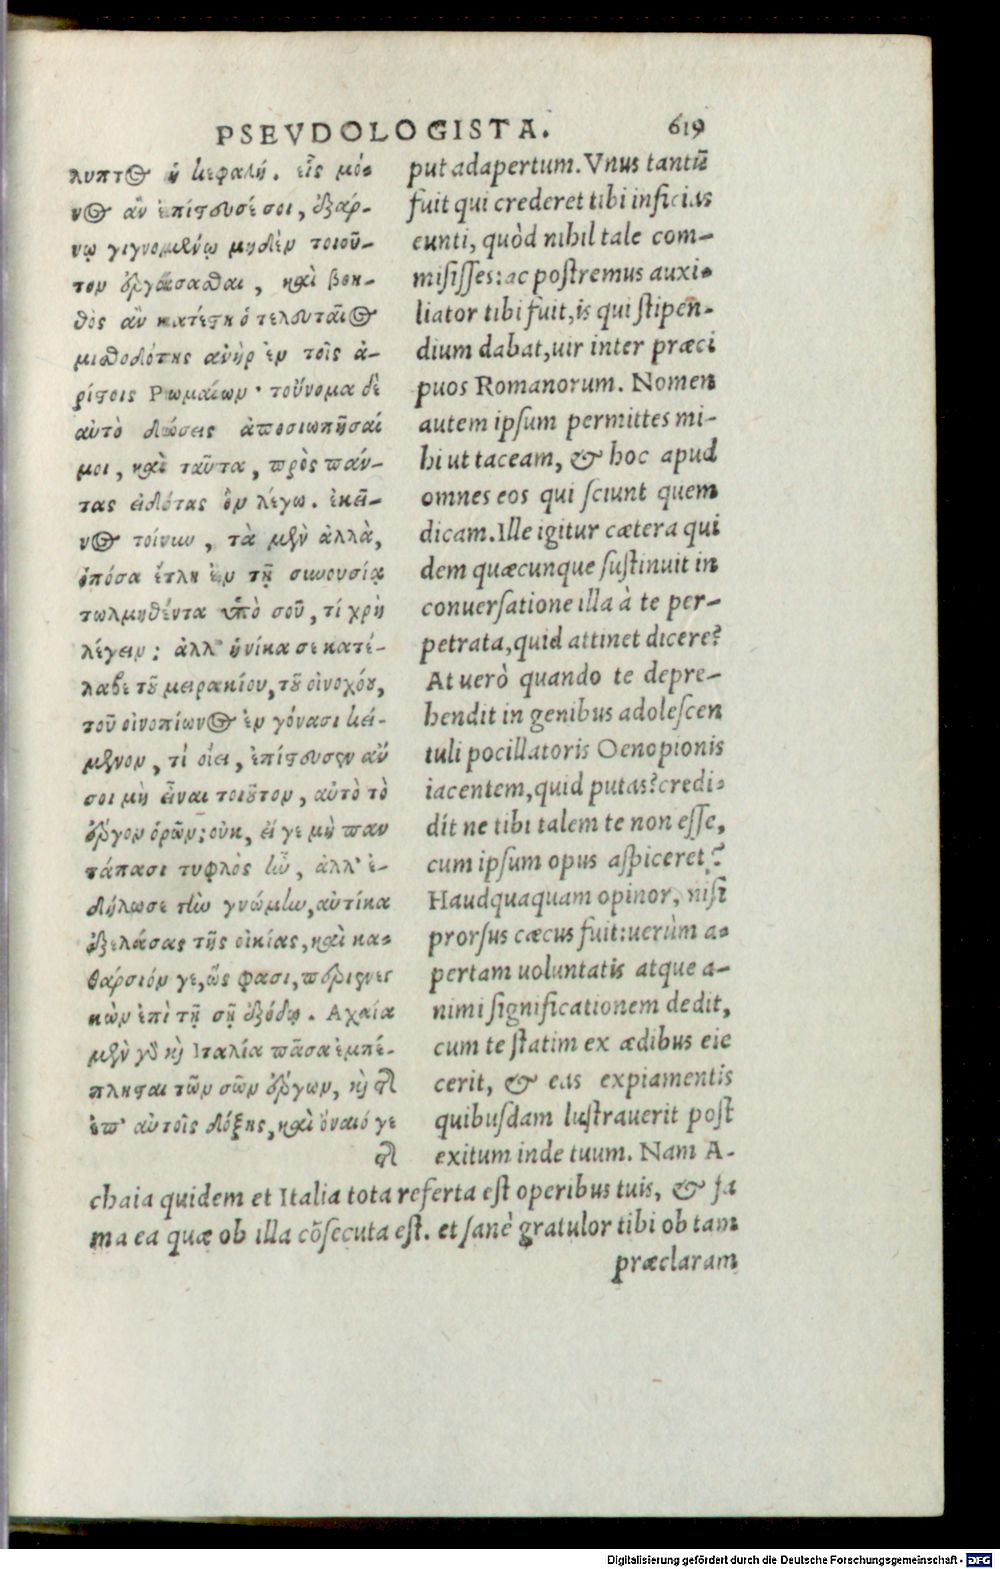 PSEVDOLOGISTA. 619
λυπτος ἡ κεφαλή. εἷς μό-
νος ἂν ἐπίστευσέ σοι, ἐξάρ-
νῳ γιγνομένῳ μηδὲν τοιοῦ-
τον ἐργάσασθαι, καὶ βοη-
θὸς ἂν κατέστη ὁ τελευταῖος
μισθοδότης ἀνὴρ ἐν τοῖς ἀ-
ρίστοις Ρωμαίων· τοὔνομα δὲ
αὐτὸ δώσεις ἀποσιωπῆσαί
μοι, καὶ ταῦτα, πρὸς πάν-
τας εἰδότας ὃν λέγω. ἐκεῖ-
νος τοίνυν, τὰ μὲν ἀλλὰ,
ὁπόσα ἔτλη ἐν τῇ συνουσίᾳ
τωλμηθέντα ὑπὸ σοῦ, τί χρὴ
λέγειν; ἀλλ' ἡνίκα σε κατέ-
λαβε τοῦ μειρακίου, τοῦ οἰνοχόου,
τοῦ οἰνοπίωνος ἐν γόνασι κεί-
μενον, τί οἴει, ἐπίστευσεν ἄν
σοι μὴ εἶναι τοιοῦτον, αὐτὸ τὸ
ἔργον ὁρῶν; οὐκ, εἴ γε μὴ παν
τάπασι τυφλὸς ἦν, ἀλλ' ἐ-
δήλωσε τὴν γνώμην, αὐτίκα
ἐξελάσας τῆς οἰκίας, καὶ κα-
θάρσιόν γε, ὥς φασι, περιενεγ
κὼν ἐπὶ τῇ σῇ ἐξόδῳ. Αχαία
μὲν γὰρ καὶ Ιταλία πᾶσα ἐμπέ-
πλησται τῶν σῶν ἔργων, καὶ τῆς
ἐπ' αὐτοῖς δόξης, καὶ ὄναιό γε
τῆς
put adapertum. Vnus tantū
fuit qui crederet tibi inficias
eunti, quòd nihil tale com-
misisses: ac postremus auxi-
liator tibi fuit, is qui stipen-
dium dabat, uir inter præci
puos Romanorum. Nomen
autem ipsum permittes mi-
hi ut taceam, & hoc apud
omnes eos qui sciunt quem
dicam. Ille igitur cætera qui
dem quæcunque sustinuit in
conuersatione illa à te per-
petrata, quid attinet dicere?
At uerò quando te depre-
hendit in genibus adolescen
tuli pocillatoris Oenopionis
iacentem, quid putas? credi-
dít ne tibi talem te non esse,
cum ipsum opus aspiceret?
Haudquaquam opinor, nisi
prorsus cæcus fuit: uerùm a-
pertam uoluntatis atque a-
nimi significationem dedit,
cum te statim ex ædibus eie
cerit, & eas expiamentis
quibusdam lustrauerit post
exitum inde tuum. Nam A-
chaia quidem et Italia tota referta est operibus tuis, & fa
ma ea quæ ob illa cōsecuta est. et sanè gratulor tibi ob tam
præclaram
Digitalisierung gefördert durch die Deutsche Forschungsgemeinschaft - DFG